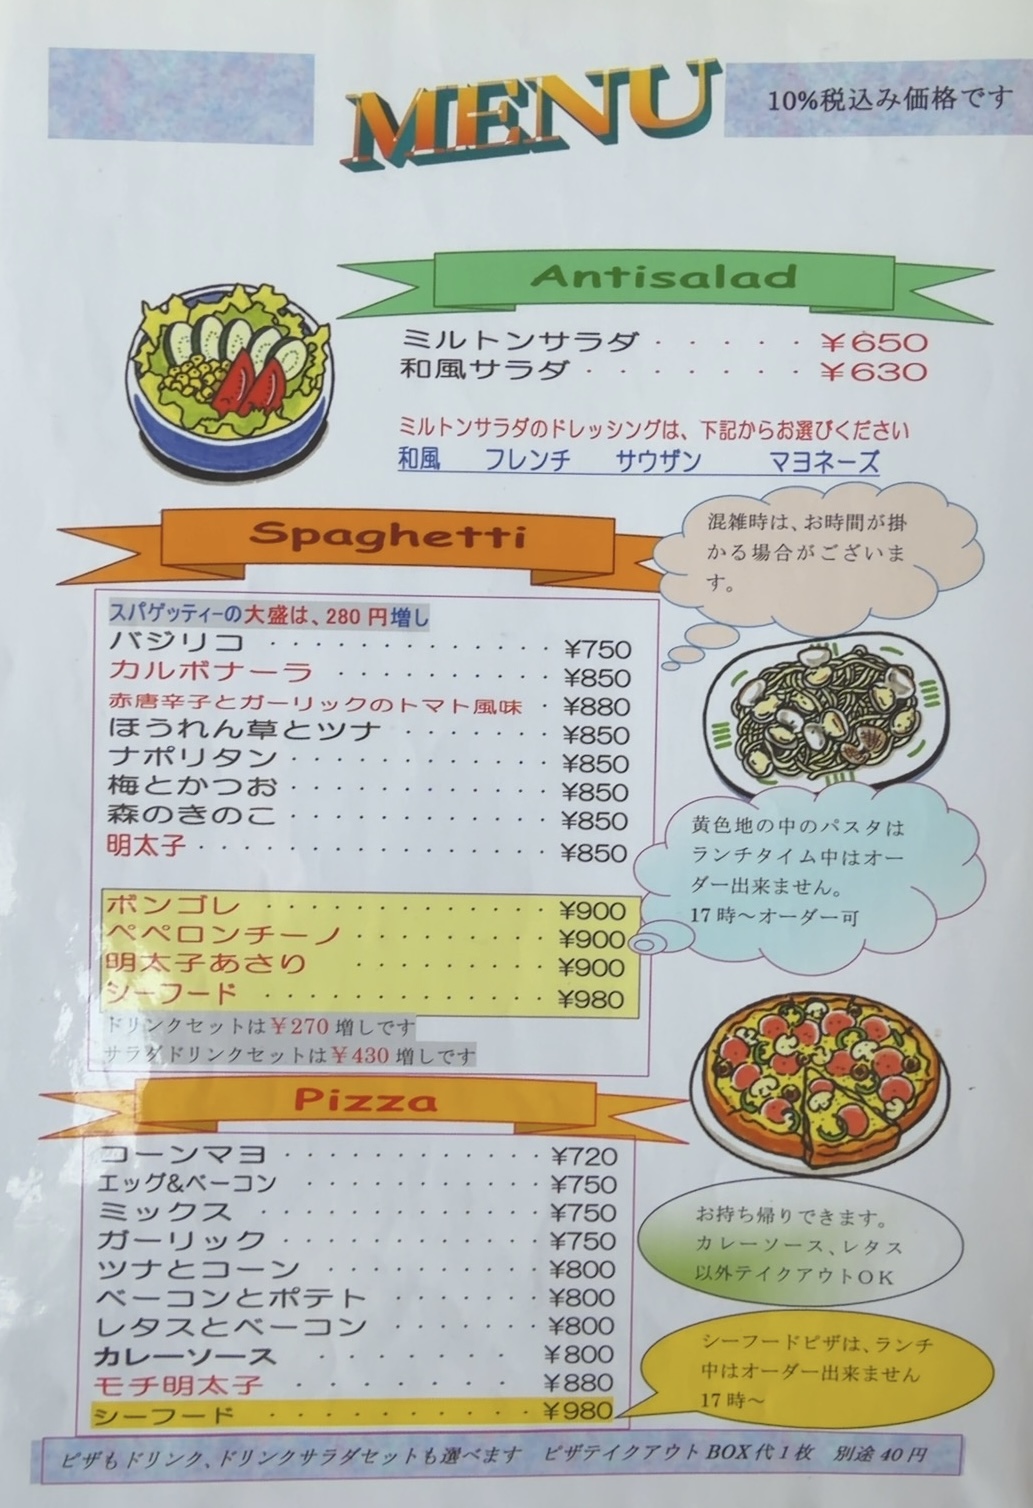 MENU
10%税込み価格です
Antisalad
ミルトンサラダ · · · · · ¥650
和風サラダ · · · · · · · ¥630
ミルトンサラダのドレッシングは、下記からお選びください
和風 フレンチ サウザン マヨネーズ
Spaghetti
混雑時は、お時間が掛
かる場合がございま
す。
スパゲッティーの大盛は、280円増し
バジリコ · · · · · · · · · · · · · ¥750
カルボナーラ · · · · · · · · · · ¥850
赤唐辛子とガーリックのトマト風味 · ¥880
ほうれん草とツナ · · · · · · · ¥850
ナポリタン · · · · · · · · · · · · ¥850
梅とかつお · · · · · · · · · · · · ¥850
森のきのこ · · · · · · · · · · · · ¥850
明太子 · · · · · · · · · · · · · · · · ¥850
黄色地の中のパスタは
ランチタイム中はオー
ダー出来ません。
17時～オーダー可
ボンゴレ · · · · · · · · · · · · · ¥900
ペペロンチーノ · · · · · · · · · ¥900
明太子あさり · · · · · · · · · ¥900
シーフード · · · · · · · · · · · · · ¥980
ドリンクセットは¥270増しです
サラダドリンクセットは¥430増しです
Pizza
コーンマヨ · · · · · · · · · · · · ¥720
エッグ&ベーコン · · · · · · · · · · · ¥750
ミックス · · · · · · · · · · · · · ¥750
ガーリック · · · · · · · · · · · · ¥750
ツナとコーン · · · · · · · · · · ¥800
ベーコンとポテト · · · · · · · ¥800
レタスとベーコン · · · · · · · ¥800
カレーソース · · · · · · · · ¥800
モチ明太子 · · · · · · · · · ¥880
シーフード · · · · · · · · · · · ¥980
お持ち帰りできます。
カレーソース、レタス
以外テイクアウトOK
シーフードピザは、ランチ
中はオーダー出来ません
17時～
ピザもドリンク、ドリンクサラダセットも選べます ピザテイクアウトBOX代1枚 別途40円